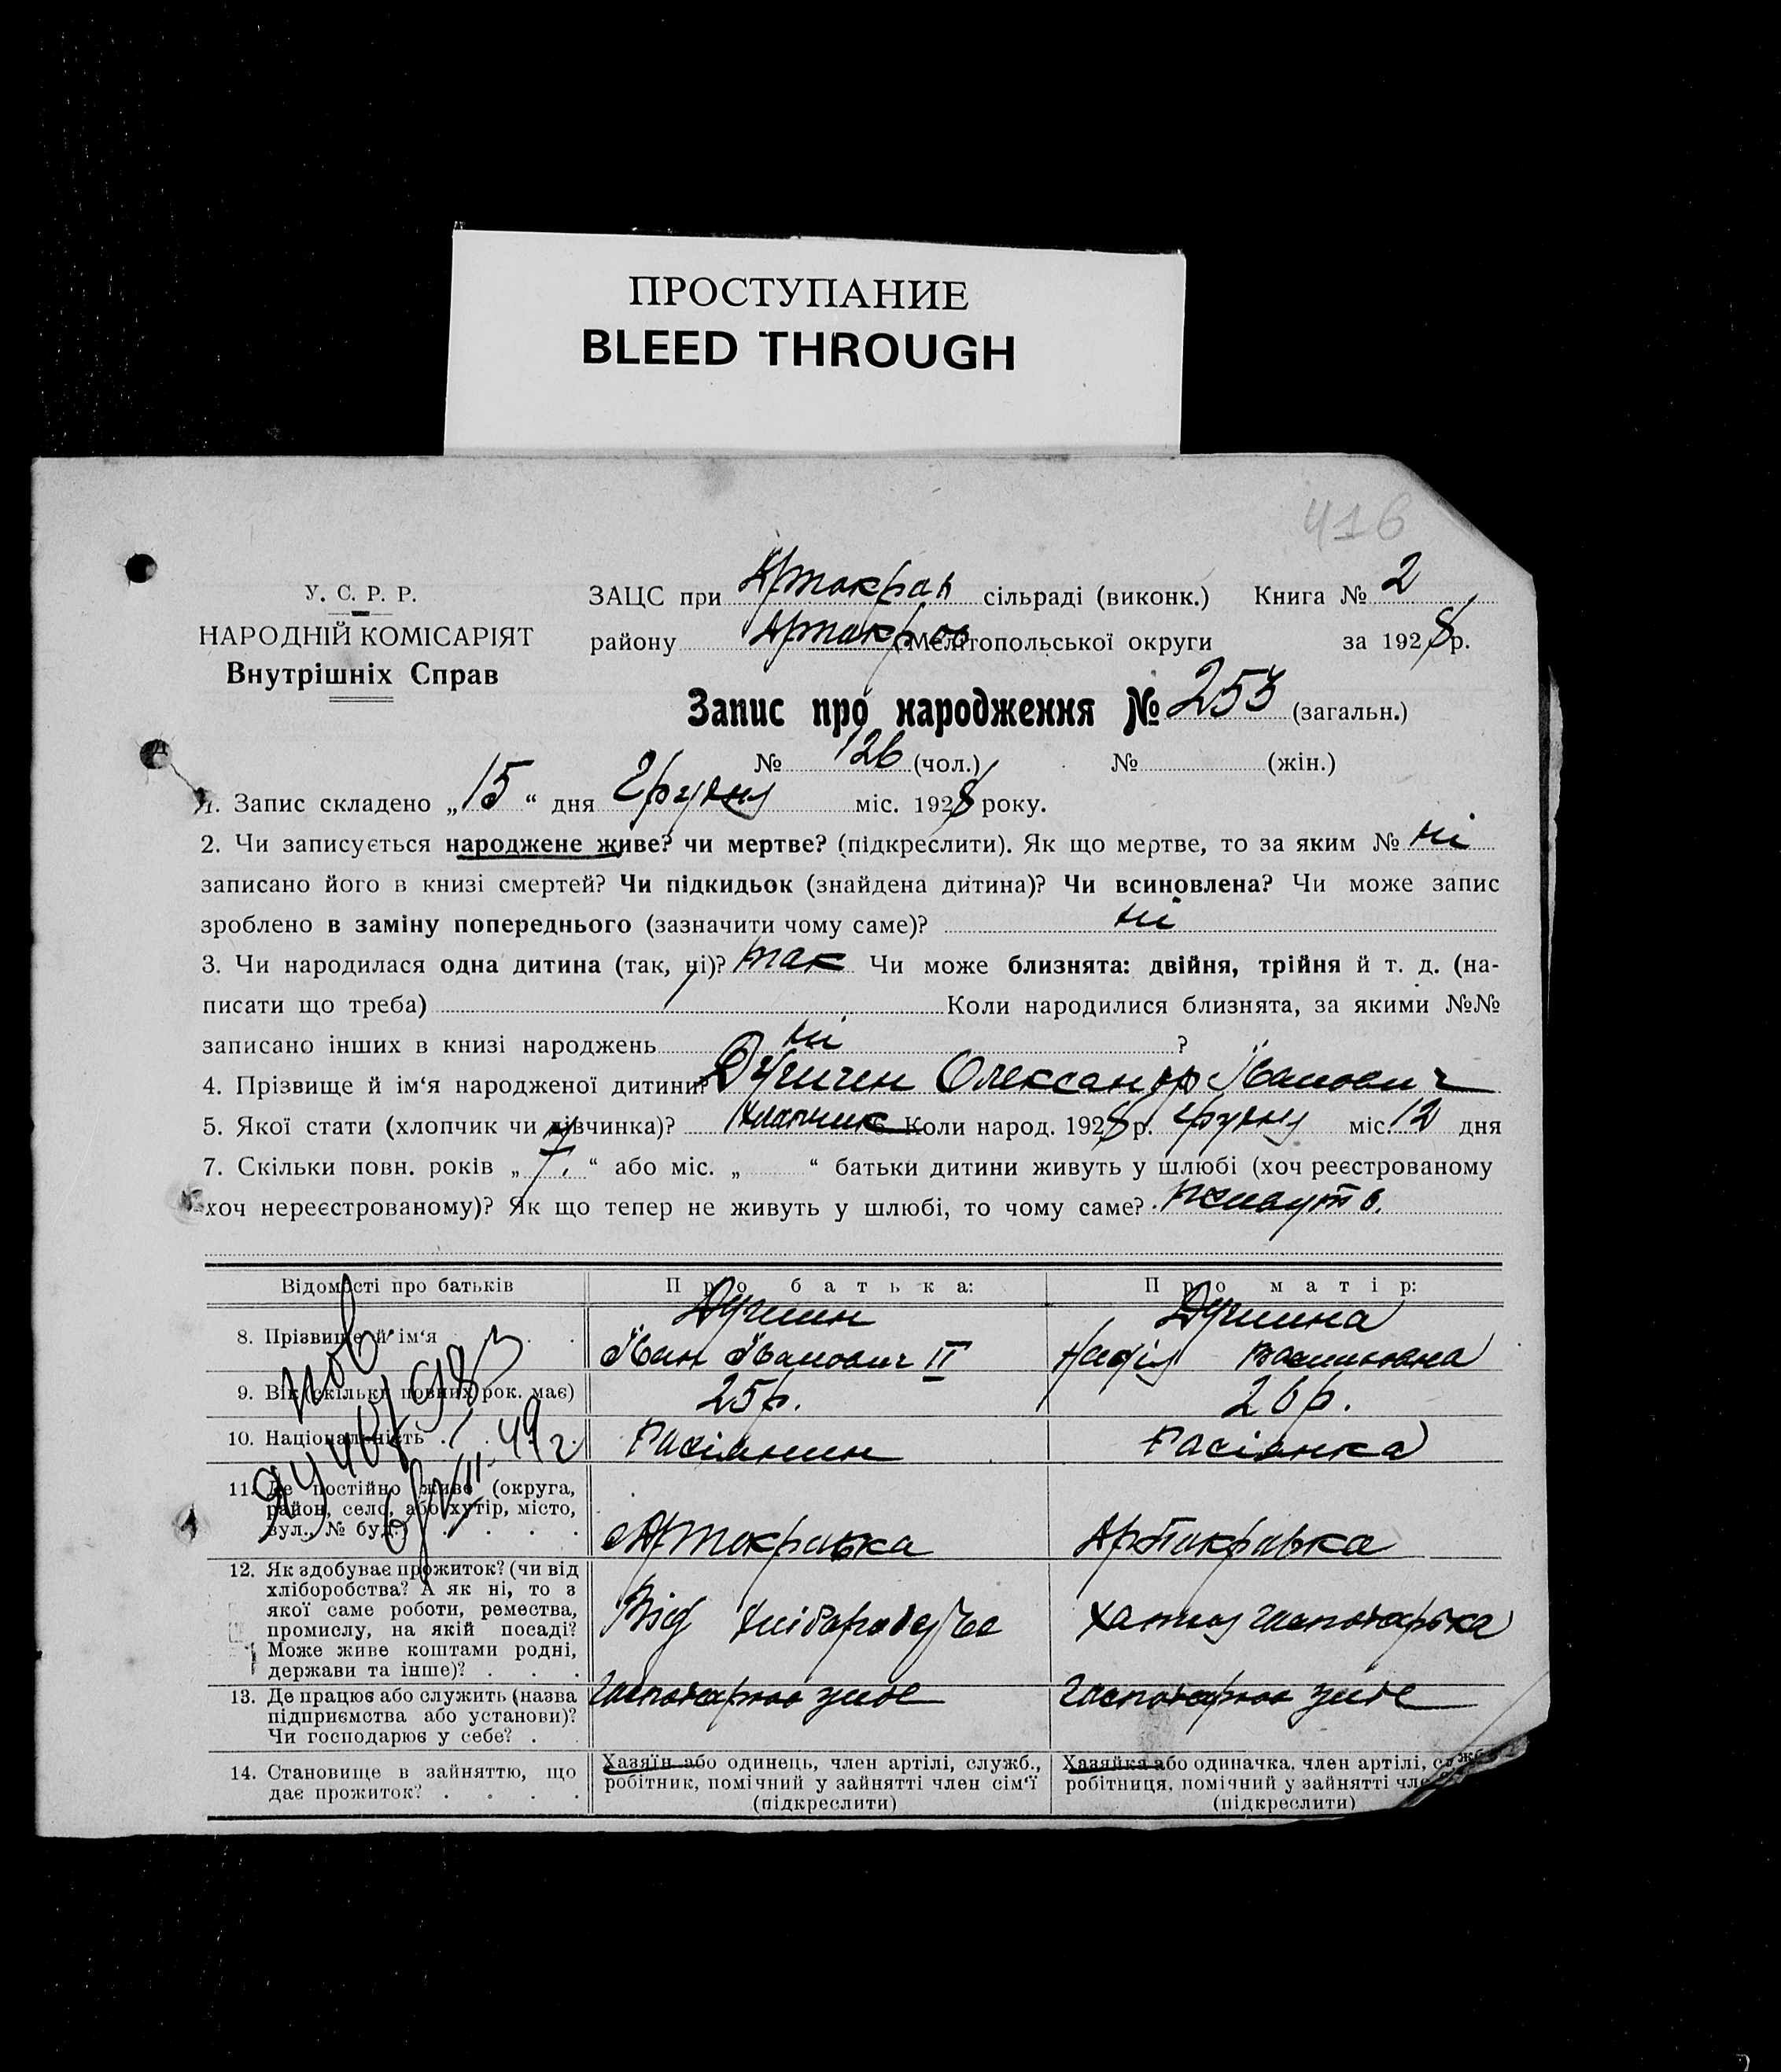 ПРОСТУПАНИЕ
BLEED THROUGH
416
У. С. Р. Р.
НАРОДНІЙ КОМІСАРІЯТ
Внутрішніх Справ
ЗАЦС при сільраді (виконк.) Книга № 2
району Мелітопольської округи за 1928 р.
Запис про народження № 253 (загальн.)
№ 126 (чол.) № (жін.)
1. Запис складено „15“ дня Грудну міс. 1928 року.
2. Чи записується народжене живе? чи мертве? (підкреслити). Як що мертве, то за яким № ні
записано його в книзі смертей? Чи підкидьок (знайдена дитина)? Чи всиновлена? Чи може запис
зроблено в заміну попереднього (зазначити чому саме)? ні
3. Чи народилася одна дитина (так, ні)? так Чи може близнята: двійня, трійня й т. д. (на-
писати що треба) Коли народилися близнята, за якими №№
записано інших в книзі народжень ні ?
4. Прізвище й ім‘я народженої дитини? Олександр Іванович
5. Якої стати (хлопчик чи дівчинка)? хлапчик 6. Коли народ. 1928 р. грудну міс. 12 дня
7. Скільки повн. років „7“ або міс. „ “ батьки дитини живуть у шлюбі (хоч реєстрованому
хоч нереєстрованому)? Як що тепер не живуть у шлюбі, то чому саме?
Відомості про батьків Про батька: Про матір:
8. Прізвище й ім‘я
Іван Іванович II
9. Вік (скільки повних рок. має) 25 р. 26 р.
10. Національність Расіянин Расіянка
11. Де постійно живе (округа,
район, село, або хутір, місто,
вул., № буд.)
12. Як здобуває прожиток? (чи від
хліборобства? А як ні, то з
якої саме роботи, ремества,
промислу, на якій посаді?
Може живе коштами родні,
держави та інше)?
Від
13. Де працює або служить (назва
підприємства або установи)?
Чи господарює у себе?
14. Становище в зайняттю, що
дає прожиток?
Хазяїн або одинець, член артілі, служб.,
робітник, помічний у зайнятті член сім‘ї
(підкреслити)
Хазяйка або одиначка, член артілі,
робітниця, помічний у зайнятті
(підкреслити)